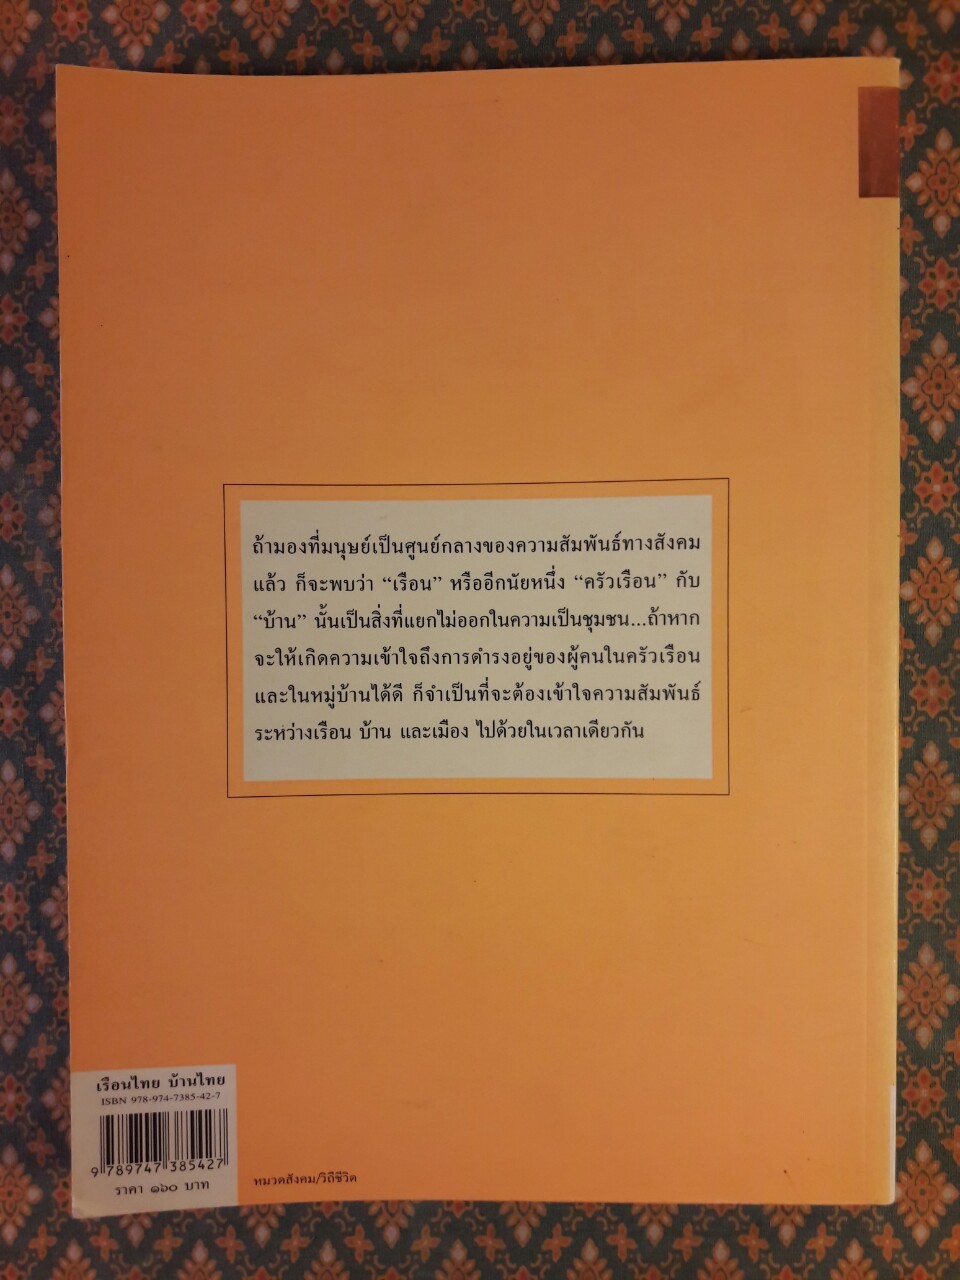 ถ้ามองที่มนุษย์เป็นศูนย์กลางของความสัมพันธ์ทางสังคม
แล้ว ก็จะพบว่า “เรือน” หรืออีกนัยหนึ่ง “ครัวเรือน” กับ
“บ้าน” นั้นเป็นสิ่งที่แยกไม่ออกในความเป็นชุมชน...ถ้าหาก
จะให้เกิดความเข้าใจถึงการดำรงอยู่ของผู้คนในครัวเรือน
และในหมู่บ้านได้ดี ก็จำเป็นที่จะต้องเข้าใจความสัมพันธ์
ระหว่างเรือน บ้าน และเมือง ไปด้วยในเวลาเดียวกัน
เรือนไทย บ้านไทย
ISBN 978-974-7385-42-7
9 789747 385427
ราคา ๑๖๐ บาท
หมวดสังคม/วิถีชีวิต